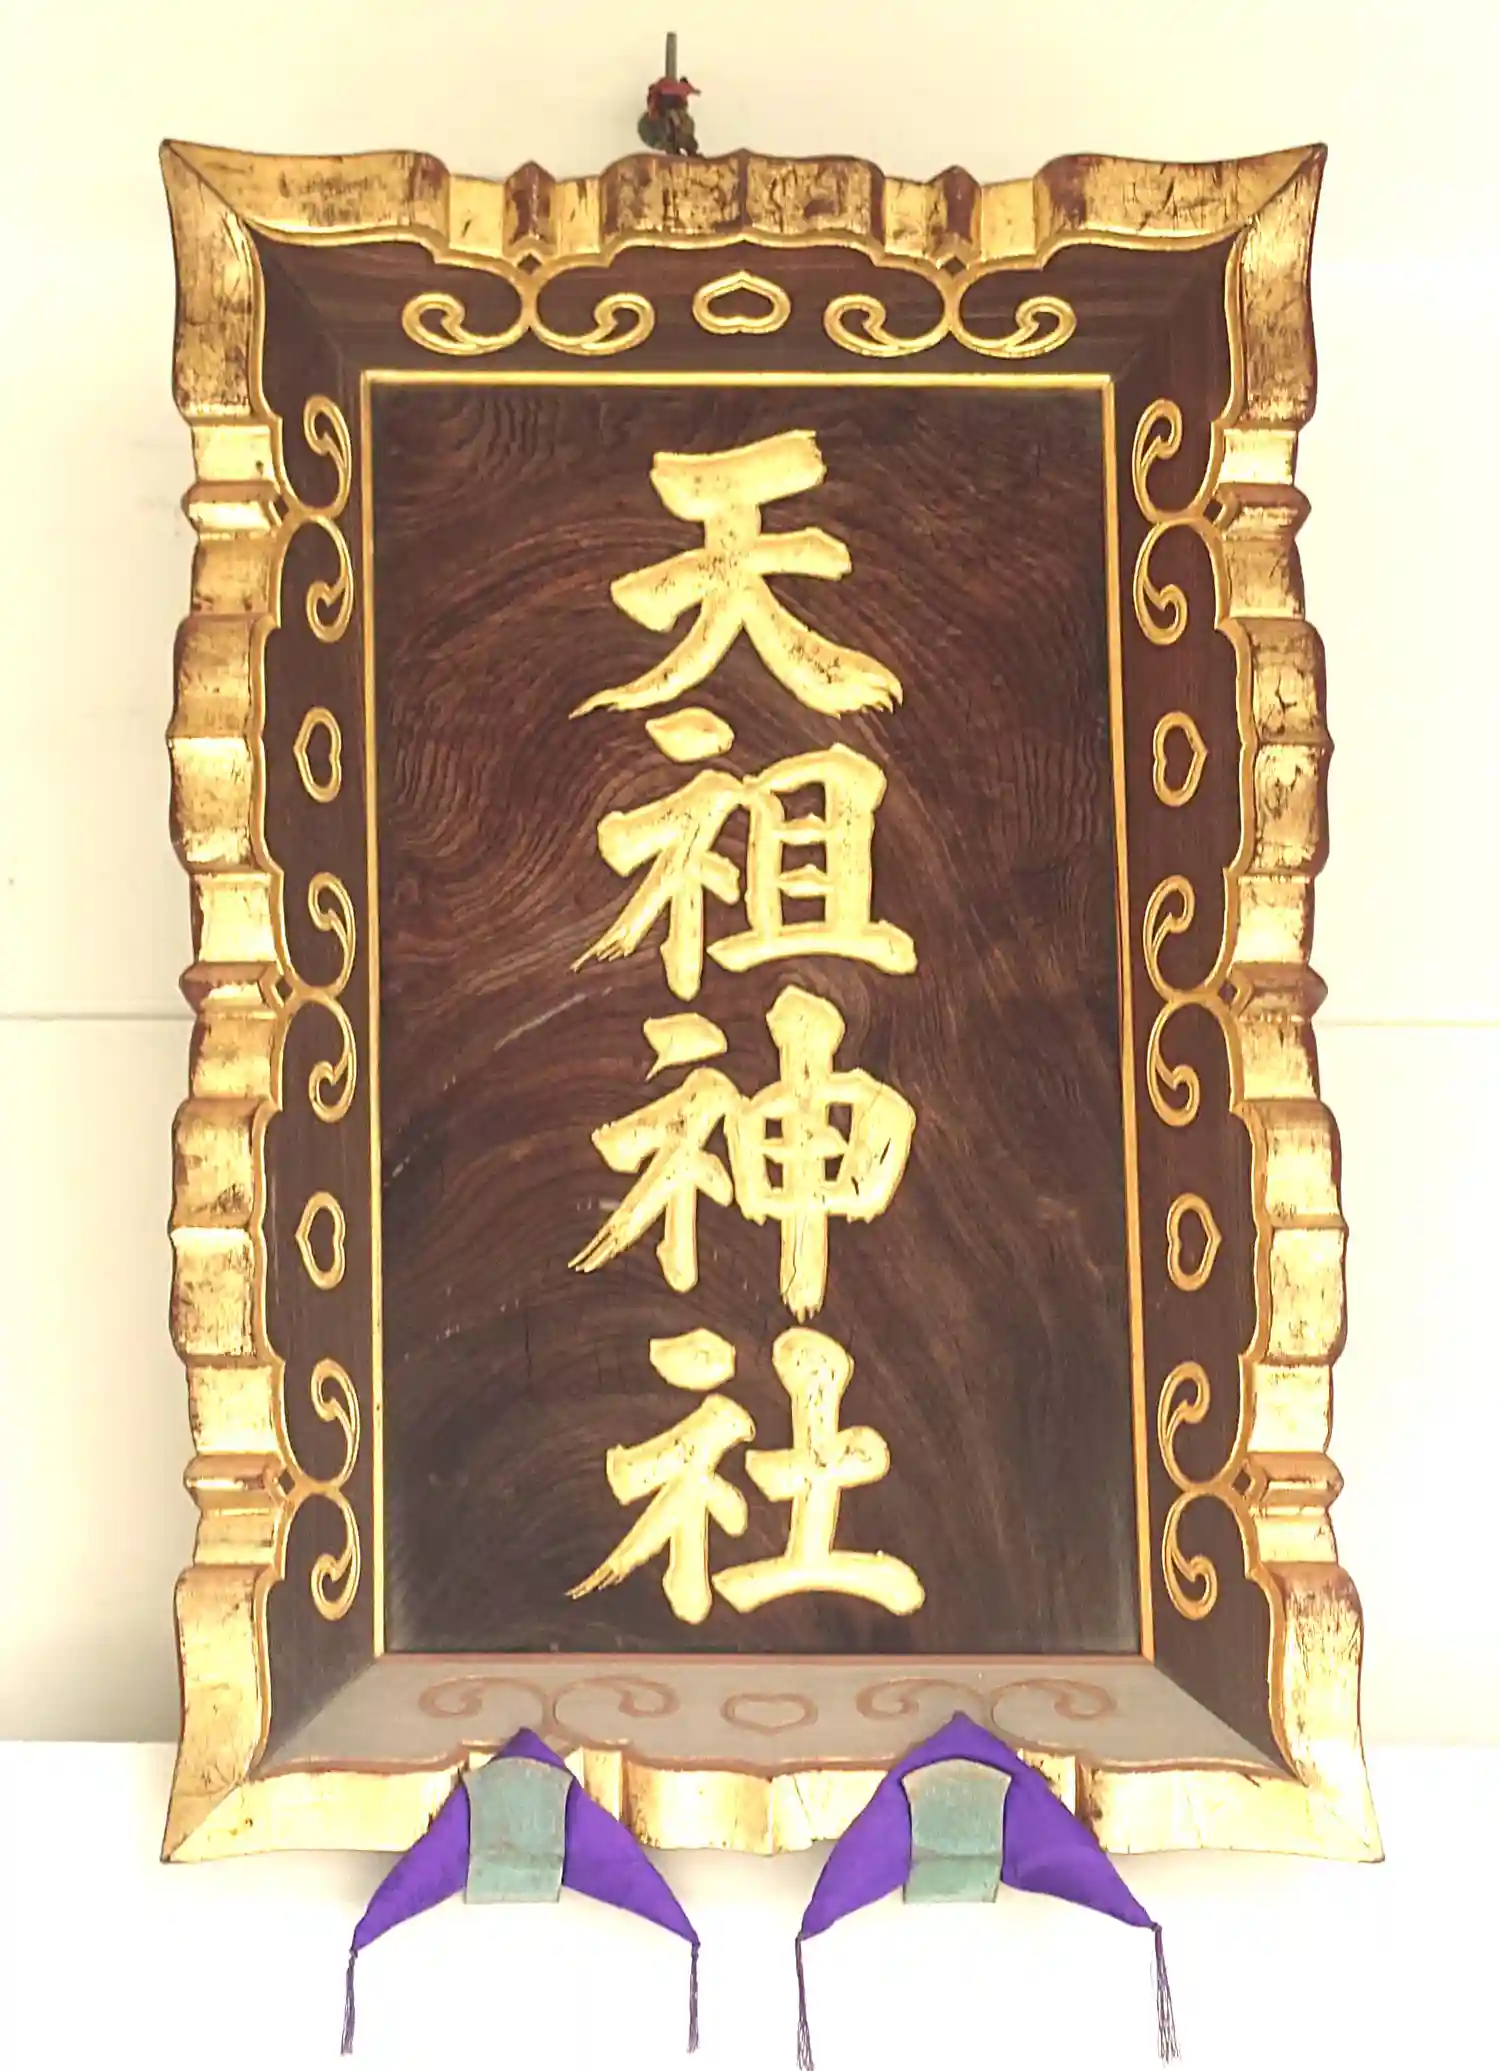 天祖神社